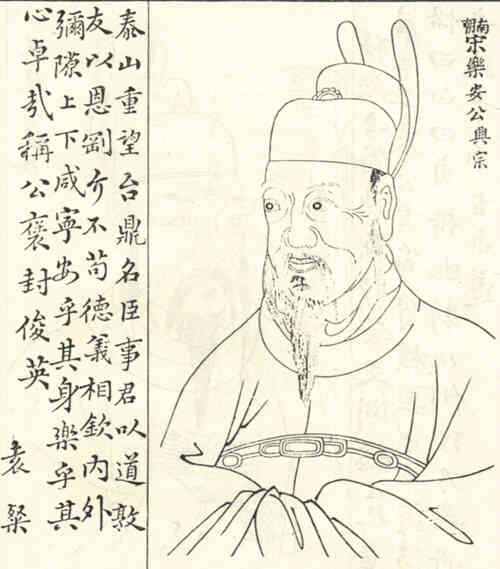 南朝宋樂安公興宗
泰山重望台鼎名臣事君以道敦
友以恩剛介不苟德義相欽內外
彌隙上下咸寧安乎其身樂乎其
心卓哉稱公褒封俊英
袁粲